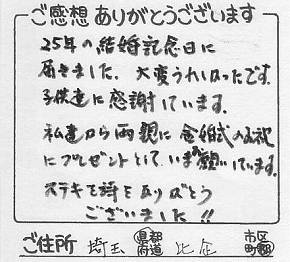 ご感想ありがとうございます
25年の結婚記念日に
届きました。大変うれしかったです。
子供達に感謝しています。
私達から両親に金婚式のお祝
にプレゼントとして、いま願いています。
ステキな詩をありがとう
ございました!!
ご住所 埼玉 都道府県 比企 市区町郡